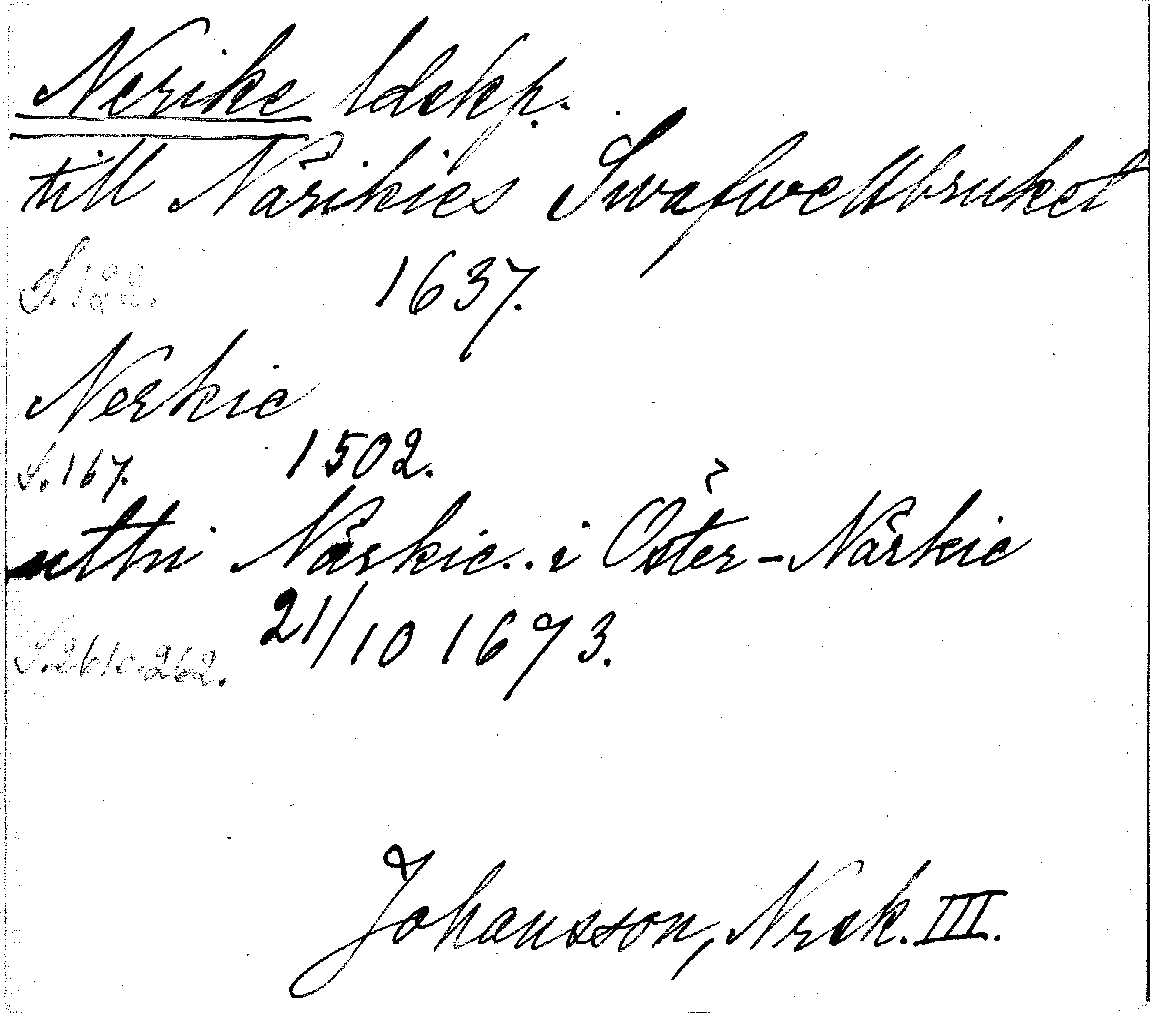 Nerike ldskp.
till Närikies Swafwellbruket
S. 122. 1637.
Nerkie
S. 167. 1502.
uthi Närkie.. i Öster-Närkie
S. 261 o. 262. 21/10 1673.
Johansson, Nrsk. III.